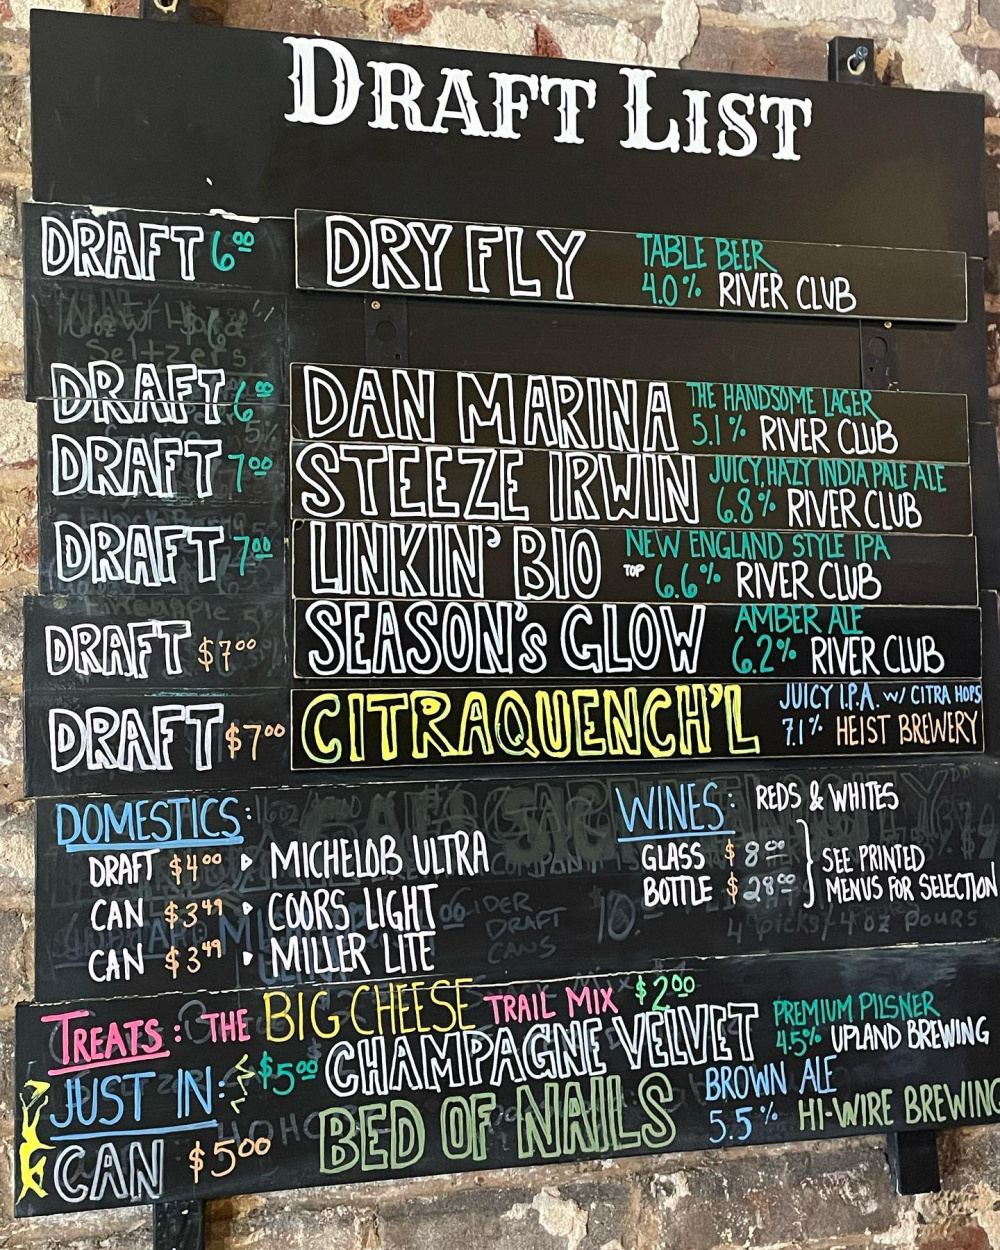 DRAFT LIST
DRAFT 6.00 DRY FLY TABLE BEER
4.0% RIVER CLUB
DRAFT 6.00 DAN MARINA THE HANDSOME LAGER
5.1% RIVER CLUB
DRAFT 7.00 STEEZE IRWIN JUICY, HAZY INDIA PALE ALE
6.8% RIVER CLUB
DRAFT 7.00 LINKIN' BIO NEW ENGLAND STYLE IPA
TOP 6.6% RIVER CLUB
DRAFT $7.00 SEASON'S GLOW AMBER ALE
6.2% RIVER CLUB
DRAFT $7.00 CITRAQUENCH'L JUICY I.P.A. W/ CITRA HOPS
7.1% HEIST BREWERY
DOMESTICS:
DRAFT $4.00 MICHELOB ULTRA
CAN $3.49 COORS LIGHT
CAN $3.49 MILLER LITE
WINES: REDS & WHITES
GLASS $8.00
BOTTLE $28.00
SEE PRINTED
MENUS FOR SELECTION
TREATS: THE BIG CHEESE TRAIL MIX $2.00
JUST IN: $5.00 CHAMPAGNE VELVET PREMIUM PILSNER
4.5% UPLAND BREWING
CAN $5.00 BED OF NAILS BROWN ALE
5.5% HI-WIRE BREWING